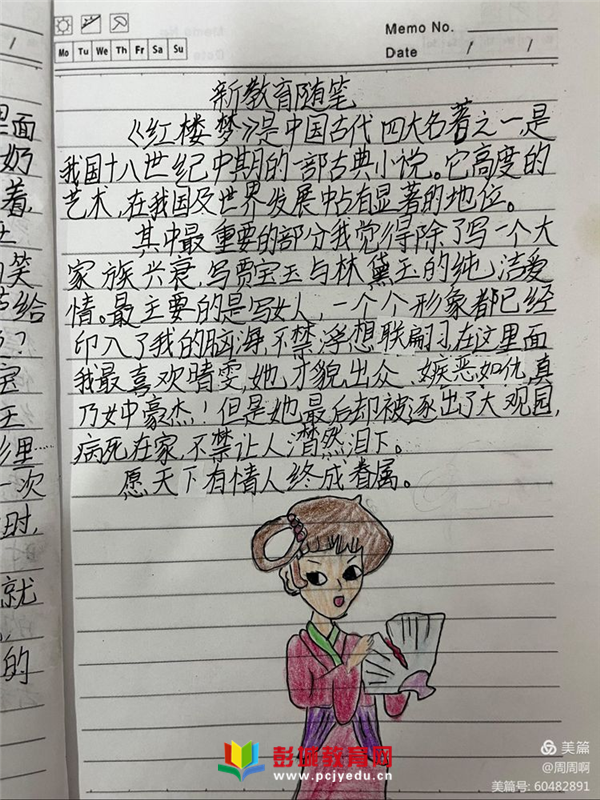 Memo No.
Mo Tu We Th Fr Sa Su
Date / /
新教育随笔
《红楼梦》是中国古代四大名著之一,是
我国十八世纪中期的一部古典小说。它高度的
艺术,在我国及世界发展中占有显著的地位。
其中最重要的部分我觉得除了写一个大
家族兴衰,写贾宝玉与林黛玉的纯洁爱
情。最主要的是写女人,一个个形象都已经
印入了我的脑海,不禁浮想联翩,在这里面
我最喜欢晴雯,她才貌出众、嫉恶如仇,真
乃女中豪杰!但是她最后却被逐出了大观园,
病死在家,不禁让人潸然泪下。
愿天下有情人终成眷属。
里面
奶
着,
笑
给
?
宝
王
里……
一次
时,
就
的
彭城教育网
www.pcjyedu.cn
美篇
@周周啊
美篇号: 60482891